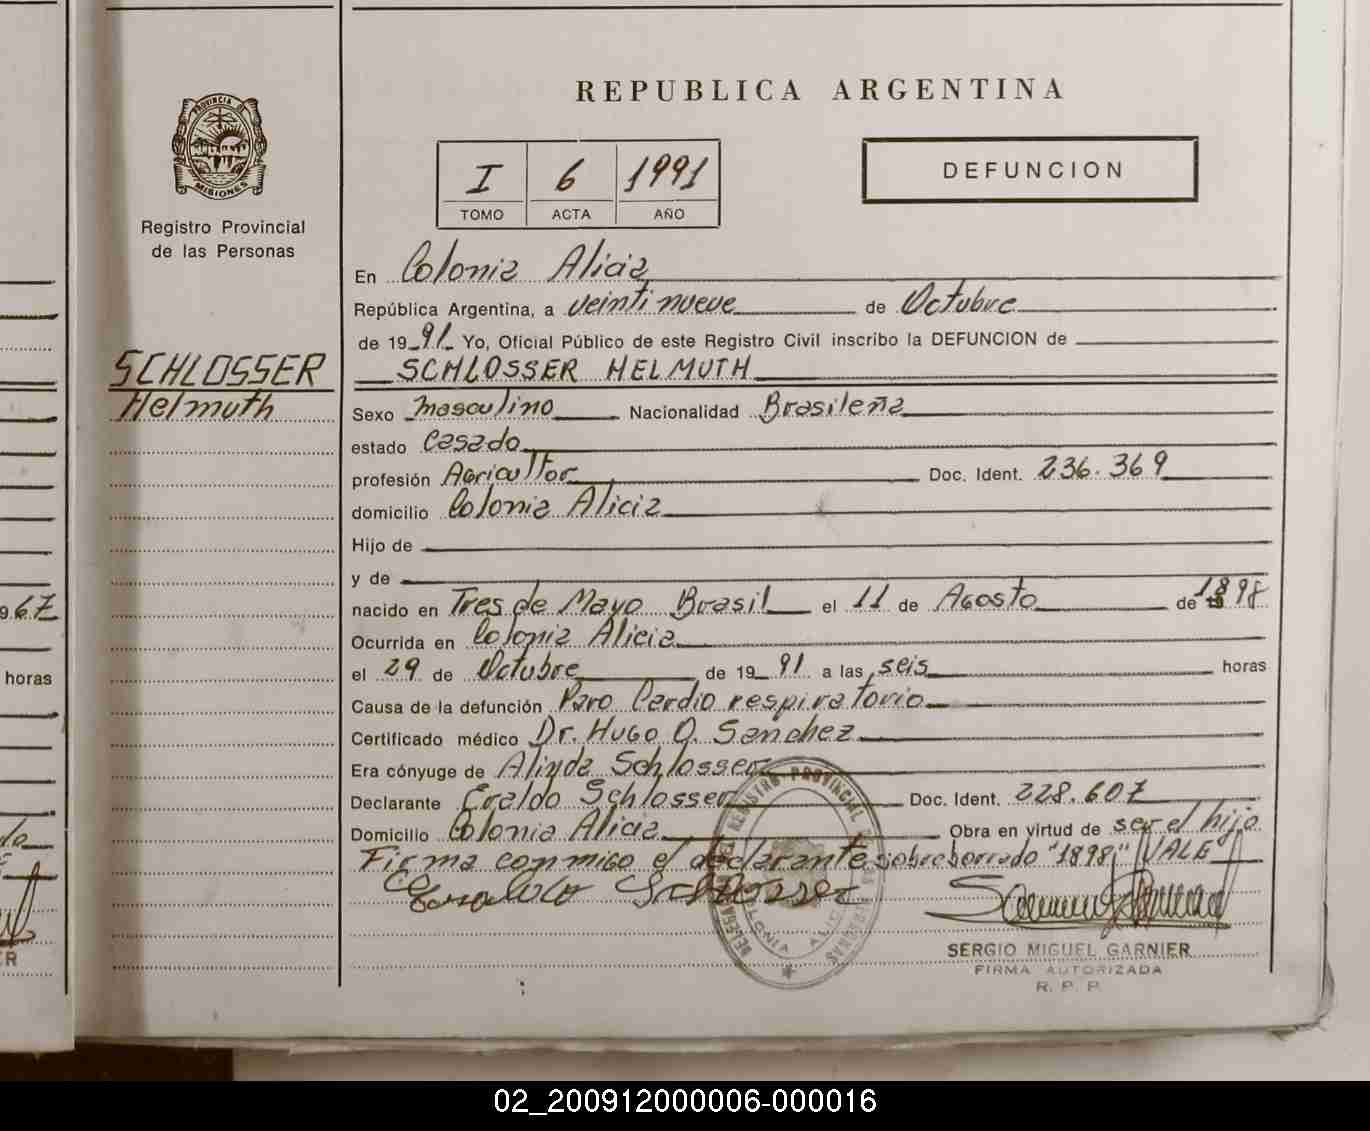 PROVINCIA DE
MISIONES
Registro Provincial
de las Personas
SCHLOSSER
Helmuth
REPUBLICA ARGENTINA
I 6 1991
TOMO ACTA AÑO
DEFUNCION
En Colonia Alicia
República Argentina, a veintinueve de Octubre
de 1991 Yo, Oficial Público de este Registro Civil inscribo la DEFUNCION de
SCHLOSSER HELMUTH
Sexo masculino Nacionalidad Brasileña
estado Casado
profesión Agricultor Doc. Ident. 236.369
domicilio Colonia Alicia
Hijo de
y de
nacido en Tres de Mayo Brasil el 11 de Agosto de 1898
Ocurrida en Colonia Alicia
el 29 de Octubre de 1991 a las seis horas
Causa de la defunción Paro Cardio respiratorio
Certificado médico Dr. Hugo O. Sanchez
Era cónyuge de Alinda Schlosser
Declarante Eraldo Schlosser Doc. Ident. 228.607
Domicilio Colonia Alicia Obra en virtud de ser el hijo
Firma conmigo el declarante sobreborrado "1898" VALE
Schlosser
SERGIO MIGUEL GARNIER
FIRMA AUTORIZADA
R. P. P.
REGISTRO PROVINCIAL DE LAS PERSONAS
COLONIA ALICIA
967
horas
02_200912000006-000016